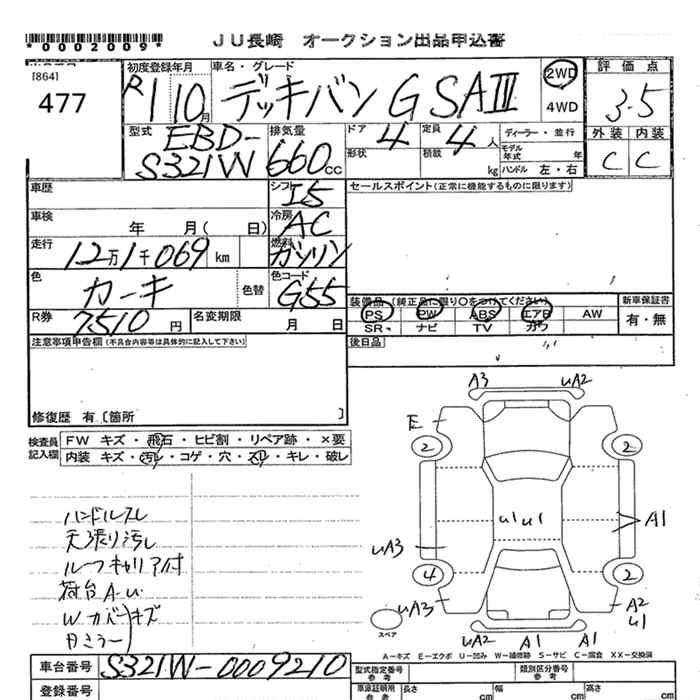 *0002009*
JU長崎 オークション出品申込書
[864]
477
初度登録年月
R1 10月
車名・グレード
デッキバン G SAⅢ
2WD
4WD
評価点
3.5
型式
EBD-
S321W
排気量
660cc
ドア 4
形状
定員 4人
積載 kg
ディーラー・並行
モデル年式 年
ハンドル 左・右
外装 内装
C C
車歴
シフト I5
セールスポイント(正常に機能するものに限ります)
車検 年 月( 日)
冷房 AC
走行 12万1千069 km
燃料 ガソリン
色 カーキ
色替
色コード G55
装備品(純正品に限り○をつけてください)
PS PW ABS エアB AW
SR ナビ TV カワ
新車保証書
有・無
R券 7510円
名変期限 月 日
後日品
注意事項申告欄(不具合内容等は具体的に記入して下さい)
修復歴 有〔箇所 〕
検査員記入欄
FW キズ・飛石・ヒビ割・リペア跡・×要
内装 キズ・汚レ・コゲ・穴・スリ・キレ・破レ
ハンドルスレ
天張り汚レ
ルーフキャリア付
荷台A-U
Wカバーキズ
Bミラー
A3 uA2
E
2 2
u1 u1
A1
uA3
4 2
uA3
A2
u1
スペア
uA2 A1 A1
A-キズ E-エクボ U-凹み W-補修跡 S-サビ C-腐食 XX-交換済
車台番号 S321W-0009210
登録番号
型式指定番号
参考
類別区分番号
参考
車庫証明用
参考
長さ cm
幅 cm
高さ cm